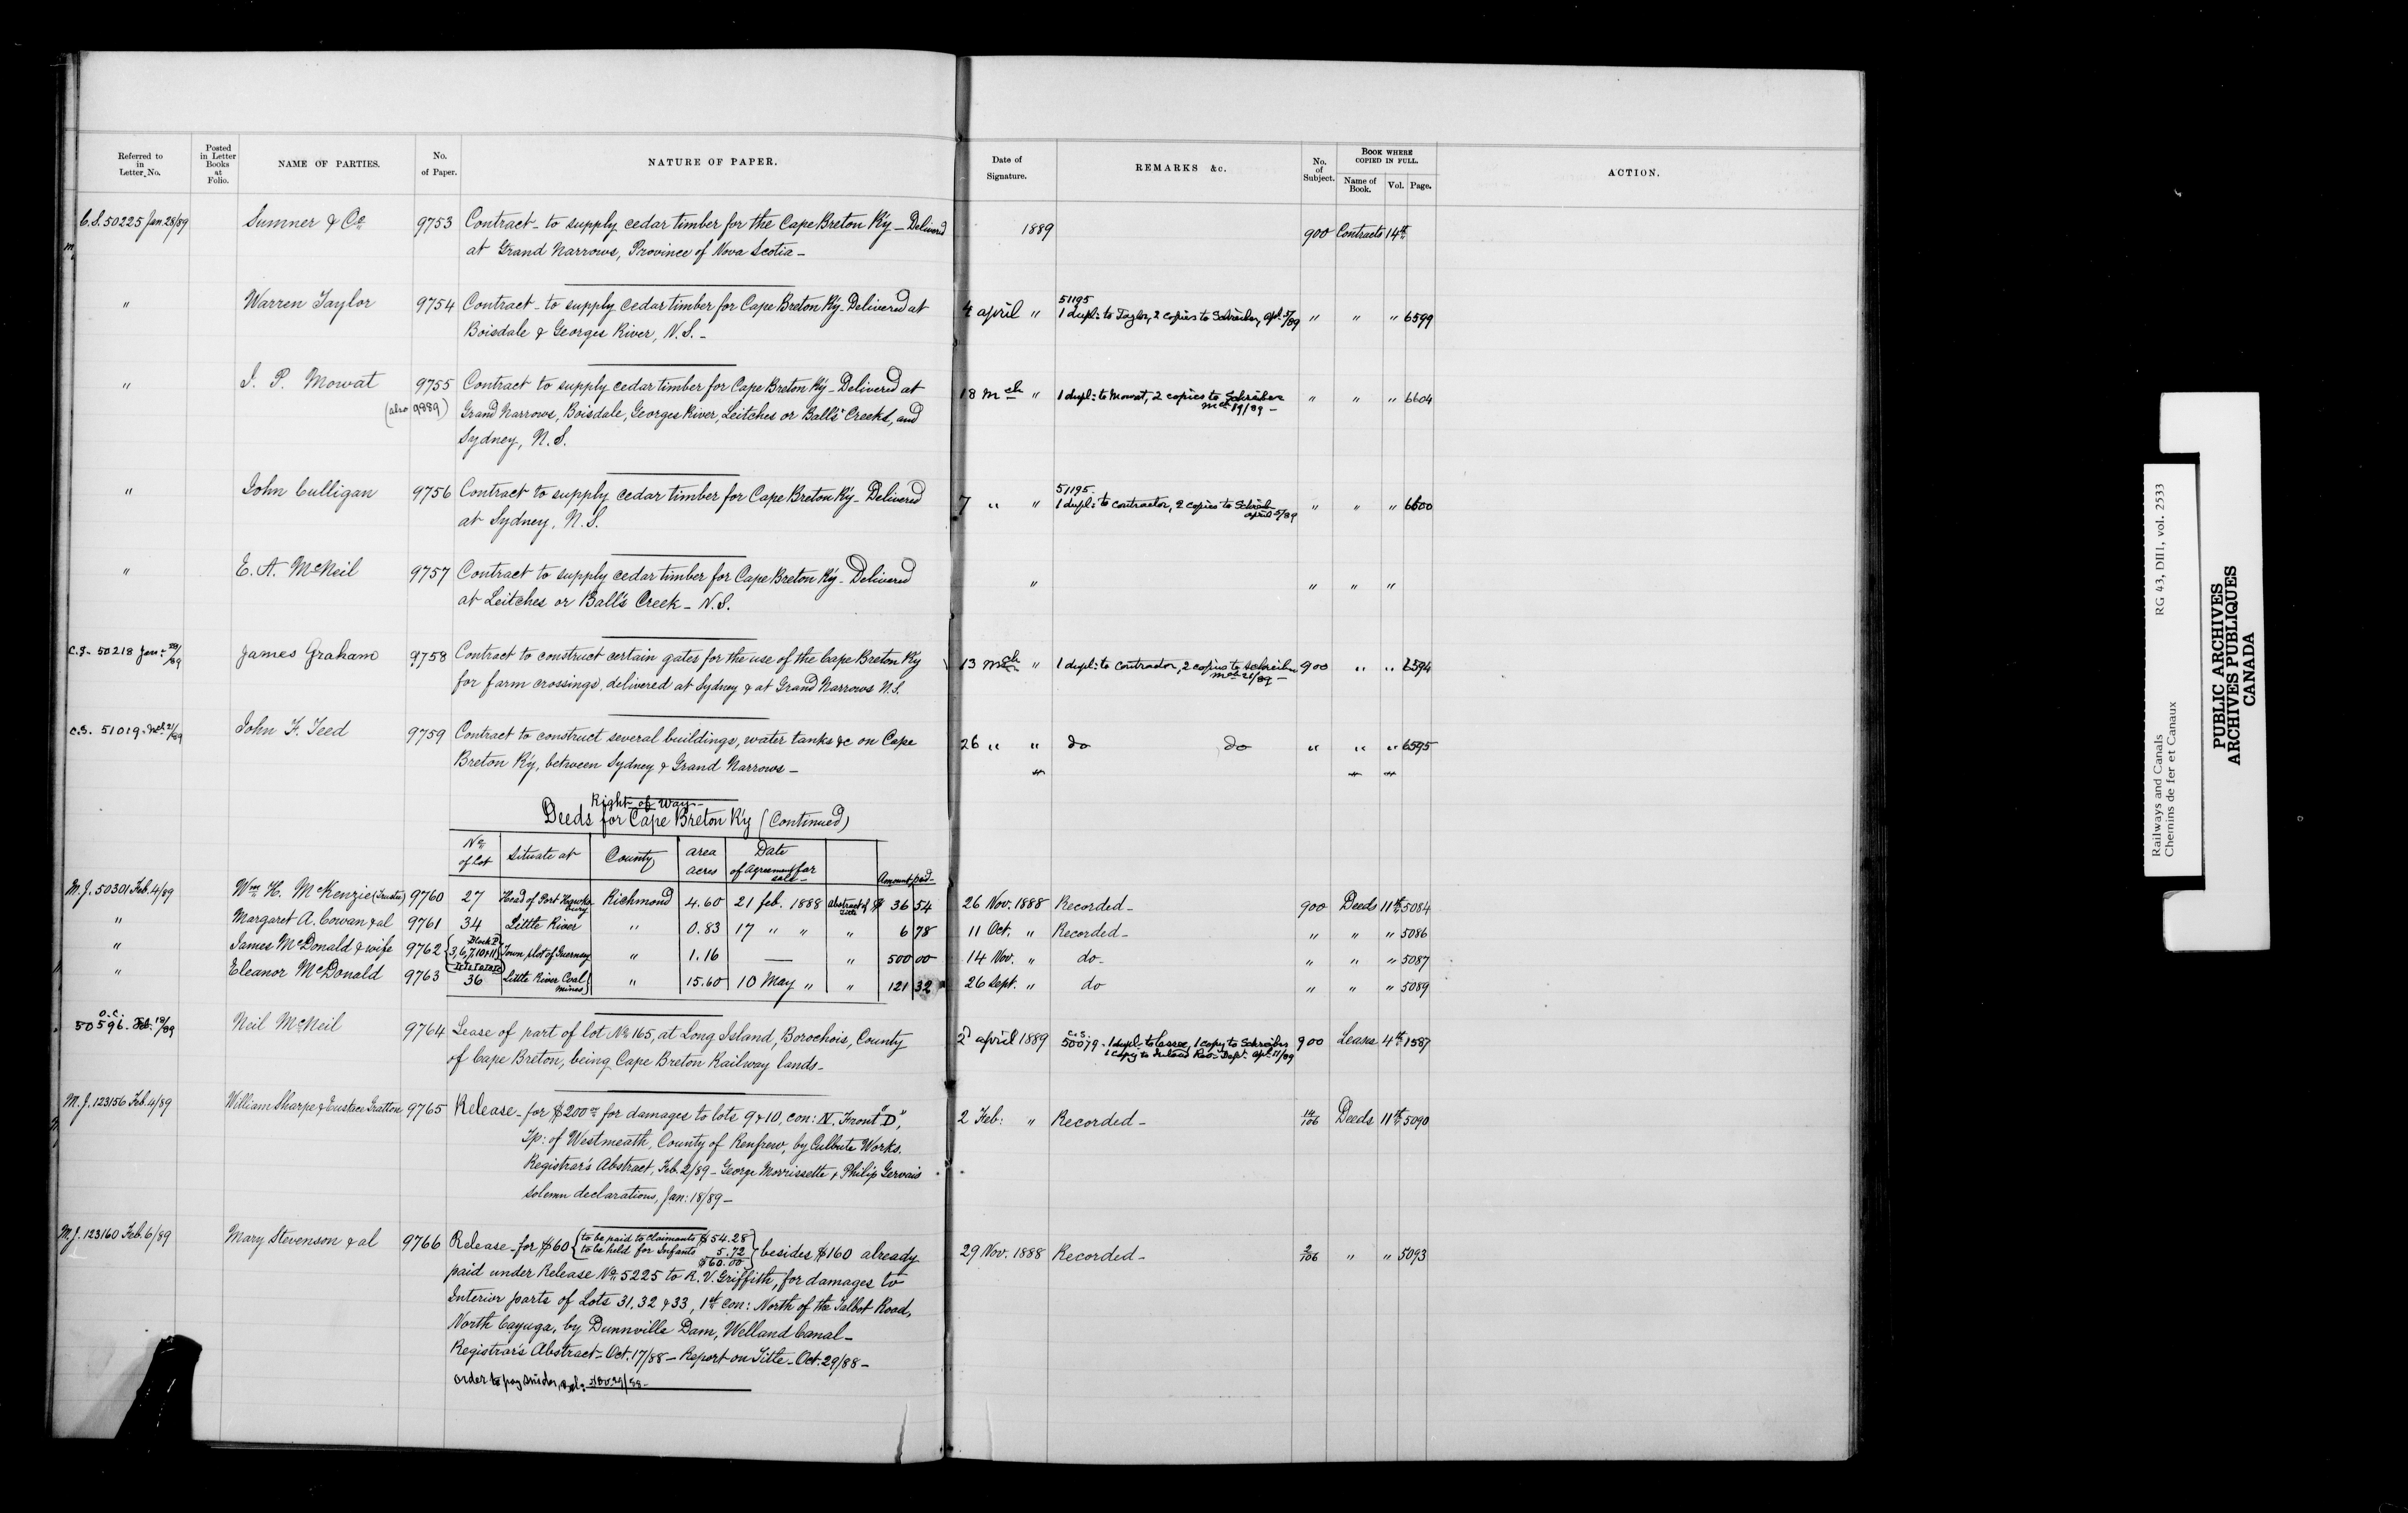 Referred to in Letter No.
Posted in Letter Books at Folio.
NAME OF PARTIES.
No. of Paper.
NATURE OF PAPER.
Date of Signature.
REMARKS &c.
No. of Subject.
BOOK WHERE COPIED IN FULL.
Name of Book. Vol. Page.
ACTION.
C.S. 50225 Jan. 28/89 Sumner & Co. 9753 Contract - to supply cedar timber for the Cape Breton Ry - Delivered 1889 900 Contracts 14th
at Grand Narrows, Province of Nova Scotia -
" Warren Taylor 9754 Contract - to supply cedar timber for Cape Breton Ry - Delivered at 4 april " 51195 1 dupl: to Taylor, 2 copies to Schreiber, apl. 5/89 " " " 6599
Boisdale & Georges River, N.S. -
" J. P. Mowat 9755 Contract to supply cedar timber for Cape Breton Ry - Delivered at 18 Mch " 1 dupl: to Mowat, 2 copies to Schreiber " " " 6604
(also 9889) Grand Narrows, Boisdale, Georges River, Leitches or Ball's Creeks, and Mch 19/89 -
Sydney, N.S.
" John Culligan 9756 Contract to supply cedar timber for Cape Breton Ry - Delivered 7 " " 51195. 1 dupl: to contractor, 2 copies to Schreiber " " " 6600
at Sydney, N.S. april 5/89
" E. A. McNeil 9757 Contract to supply cedar timber for Cape Breton Ry - Delivered " " " "
at Leitches or Ball's Creek - N.S.
C.S. 50218 Jan: 28/89 James Graham 9758 Contract to construct certain gates for the use of the Cape Breton Ry 13 Mch " 1 dupl: to contractor, 2 copies to Schreiber 900 " " 6594
for farm crossings, delivered at Sydney & at Grand Narrows N.S. Mch 21/89 -
C.S. 51019 Mch 21/89 John F. Teed 9759 Contract to construct several buildings, water tanks &c on Cape 26 " " do do " " " 6595
Breton Ry, between Sydney & Grand Narrows - " " "
Right of Way -
Deeds for Cape Breton Ry (Continued)
No. of Lot Situate at County area acres Date of Agreement for sale Amount paid -
M.J. 50301 Feb. 4/89 Wm. H. McKenzie (Trustee) 9760 27 Head of Port Hawkesbury Richmond 4.60 21 feb. 1888 Abstract of Title $ 36 54 26 Nov. 1888 Recorded - 900 Deeds 11th 5084
" Margaret A. Cowan & al 9761 34 Little River " 0.83 17 " " " 6 78 11 Oct. " Recorded - " " " 5086
" James McDonald & wife 9762 Block D 3, 6, 7, 10 & 11 Town plot of Guernsey " 1.16 — " 500 00 14 Nov. " do - " " " 5087
" Eleanor McDonald 9763 36 Little River Coal Mines " 15.60 10 May " " 121 32 26 Sept. " do " " " 5089
O.C. 50596 - Feb. 18/89 Neil McNeil 9764 Lease of part of lot No. 165, at Long Island, Borochois, County 2d april 1889 C.S. 50079 - 1 dupl. to lessee, 1 copy to Schreiber 900 Leases 4th 1587
of Cape Breton, being Cape Breton Railway lands - 1 copy to Inland Rev. Dept. apl. 11/89
M.J. 123156 Feb. 4/89 William Sharpe & Eustace Gratton 9765 Release - for $200.00 for damages to lots 9 & 10, con: N. Front "D", 2 Feb: " Recorded - 14/106 Deeds 11th 5090
Tp: of Westmeath, County of Renfrew, by Culbute Works.
Registrar's Abstract, Feb. 2/89 - George Morrissette & Philip Gervais
solemn declarations, Jan: 18/89 -
M.J. 123160 Feb. 6/89 Mary Stevenson & al 9766 Release - for $60 {to be paid to Claimants $54.28 to be held for Infants 5.72 $60.00} besides $160 already 29 Nov. 1888 Recorded - 2/106 " " 5093
paid under Release No. 5225 to R. V. Griffith, for damages to
Interior parts of Lots 31, 32 & 33, 1st con: North of the Talbot Road,
North Cayuga, by Dunnville Dam, Welland Canal -
Registrar's Abstract - Oct. 17/88 - Report on Title - Oct. 29/88 -
order to pay Nov. 29/88 -
Railways and Canals RG 43, DIII, vol. 2533
Chemins de fer et Canaux
PUBLIC ARCHIVES
ARCHIVES PUBLIQUES
CANADA